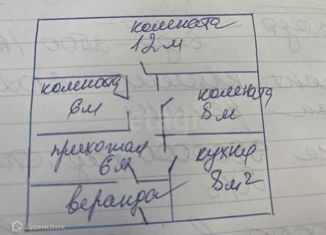 комната
12 м
комната
6 м
комната
8 м
прихожая
6 м
кухня
8 м2
веранда
Домклик